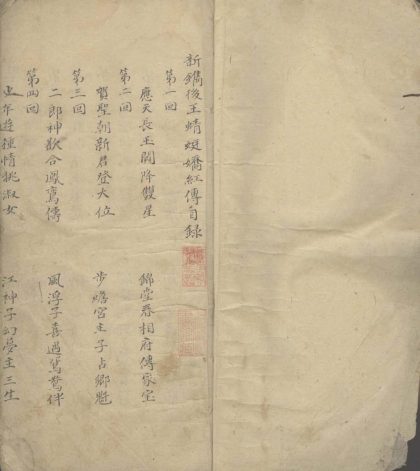 新鐫後玉蜻蜓蟠紅傳目錄
第一回
應天長玉闕降雙星　錦堂春相府傳家宝
第二回
賀聖朝新君登大位　步蟾宮才子占鄉魁
第三回
二郎神歡合鳳鸞儔　風流子喜遇鴛鴦伴
第四回
少年遊 情挑淑女　江神子幻夢主三生